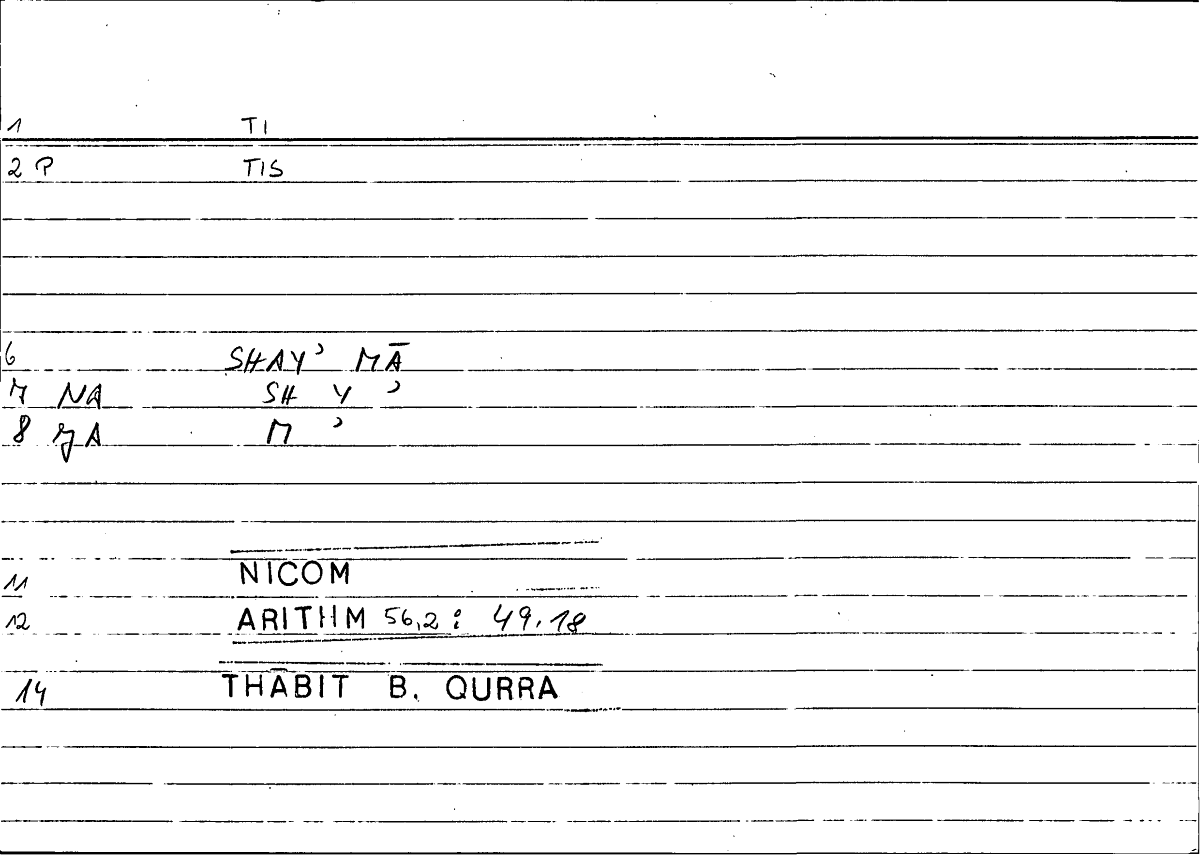 1 TI
2 P TIS
6 SHAY’ MĀ
7 NA SH Y ’
8 JA M ’
11 NICOM
12 ARITHM 56,2 : 49.18
14 THĀBIT B. QURRA